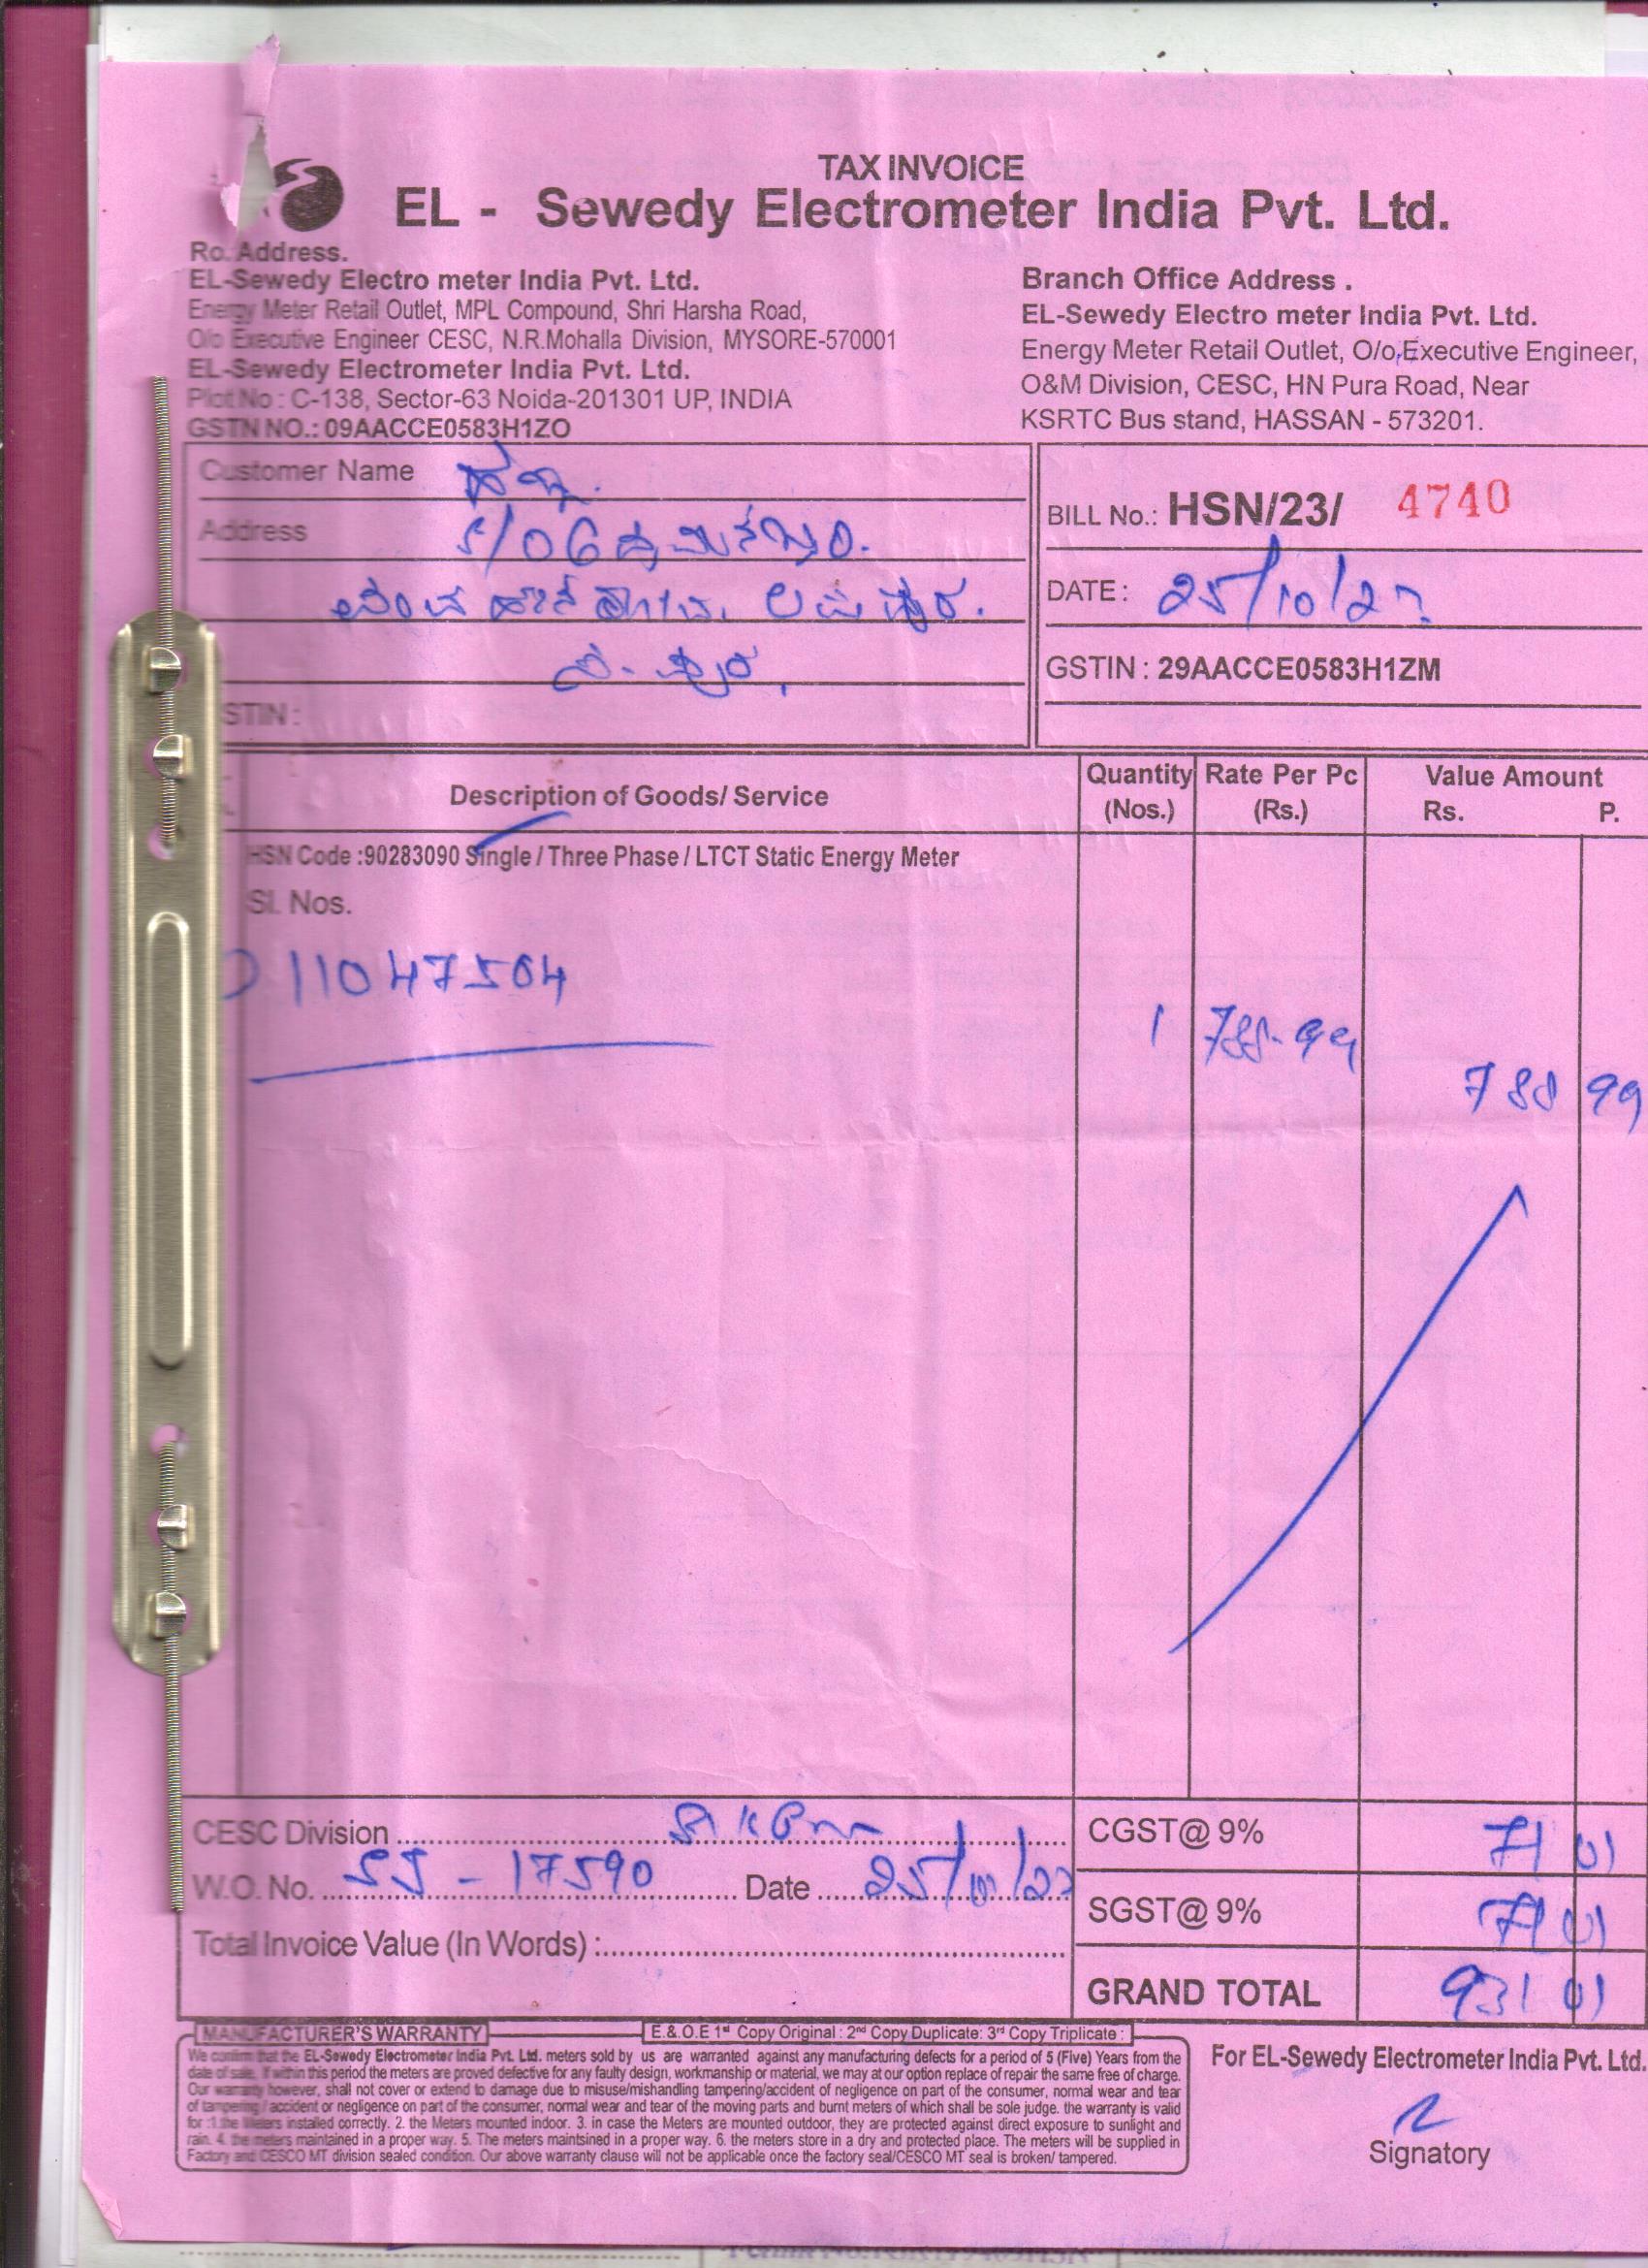 TAX INVOICE
EL - Sewedy Electrometer India Pvt. Ltd.
Ro. Address.
EL-Sewedy Electro meter India Pvt. Ltd.
Energy Meter Retail Outlet, MPL Compound, Shri Harsha Road,
O/o Executive Engineer CESC, N.R.Mohalla Division, MYSORE-570001
EL-Sewedy Electrometer India Pvt. Ltd.
Plot No : C-138, Sector-63 Noida-201301 UP, INDIA
GSTN NO.: 09AACCE0583H1ZO
Branch Office Address .
EL-Sewedy Electro meter India Pvt. Ltd.
Energy Meter Retail Outlet, O/o,Executive Engineer,
O&M Division, CESC, HN Pura Road, Near
KSRTC Bus stand, HASSAN - 573201.
Customer Name
Address S/O
STIN :
BILL No.: HSN/23/ 4740
DATE : 25/10/23
GSTIN : 29AACCE0583H1ZM
Description of Goods/ Service Quantity (Nos.) Rate Per Pc (Rs.) Value Amount Rs. P.
HSN Code :90283090 Single / Three Phase / LTCT Static Energy Meter
Sl. Nos.
11047504
1 788.99
788 99
CESC Division
W.O. No. SJ - 17590 Date 25/10/23
Total Invoice Value (In Words) :
CGST@ 9% 71 01
SGST@ 9% 71 01
GRAND TOTAL 931 01
MANUFACTURER'S WARRANTY E.& O.E 1st Copy Original : 2nd Copy Duplicate: 3rd Copy Triplicate :
We confirm that the EL-Sewedy Electrometer India Pvt. Ltd. meters sold by us are warranted against any manufacturing defects for a period of 5 (Five) Years from the
date of sale. If within this period the meters are proved defective for any faulty design, workmanship or material, we may at our option replace of repair the same free of charge.
Our warranty however, shall not cover or extend to damage due to misuse/mishandling tampering/accident of negligence on part of the consumer, normal wear and tear
of tampering / accident or negligence on part of the consumer, normal wear and tear of the moving parts and burnt meters of which shall be sole judge. the warranty is valid
for :1.the Meters installed correctly. 2. the Meters mounted indoor. 3. in case the Meters are mounted outdoor, they are protected against direct exposure to sunlight and
rain. 4. the meters maintained in a proper way. 5. The meters maintsined in a proper way. 6. the meters store in a dry and protected place. The meters will be supplied in
Factory and CESCO MT division sealed condition. Our above warranty clause will not be applicable once the factory seal/CESCO MT seal is broken/ tampered.
For EL-Sewedy Electrometer India Pvt. Ltd.
Signatory